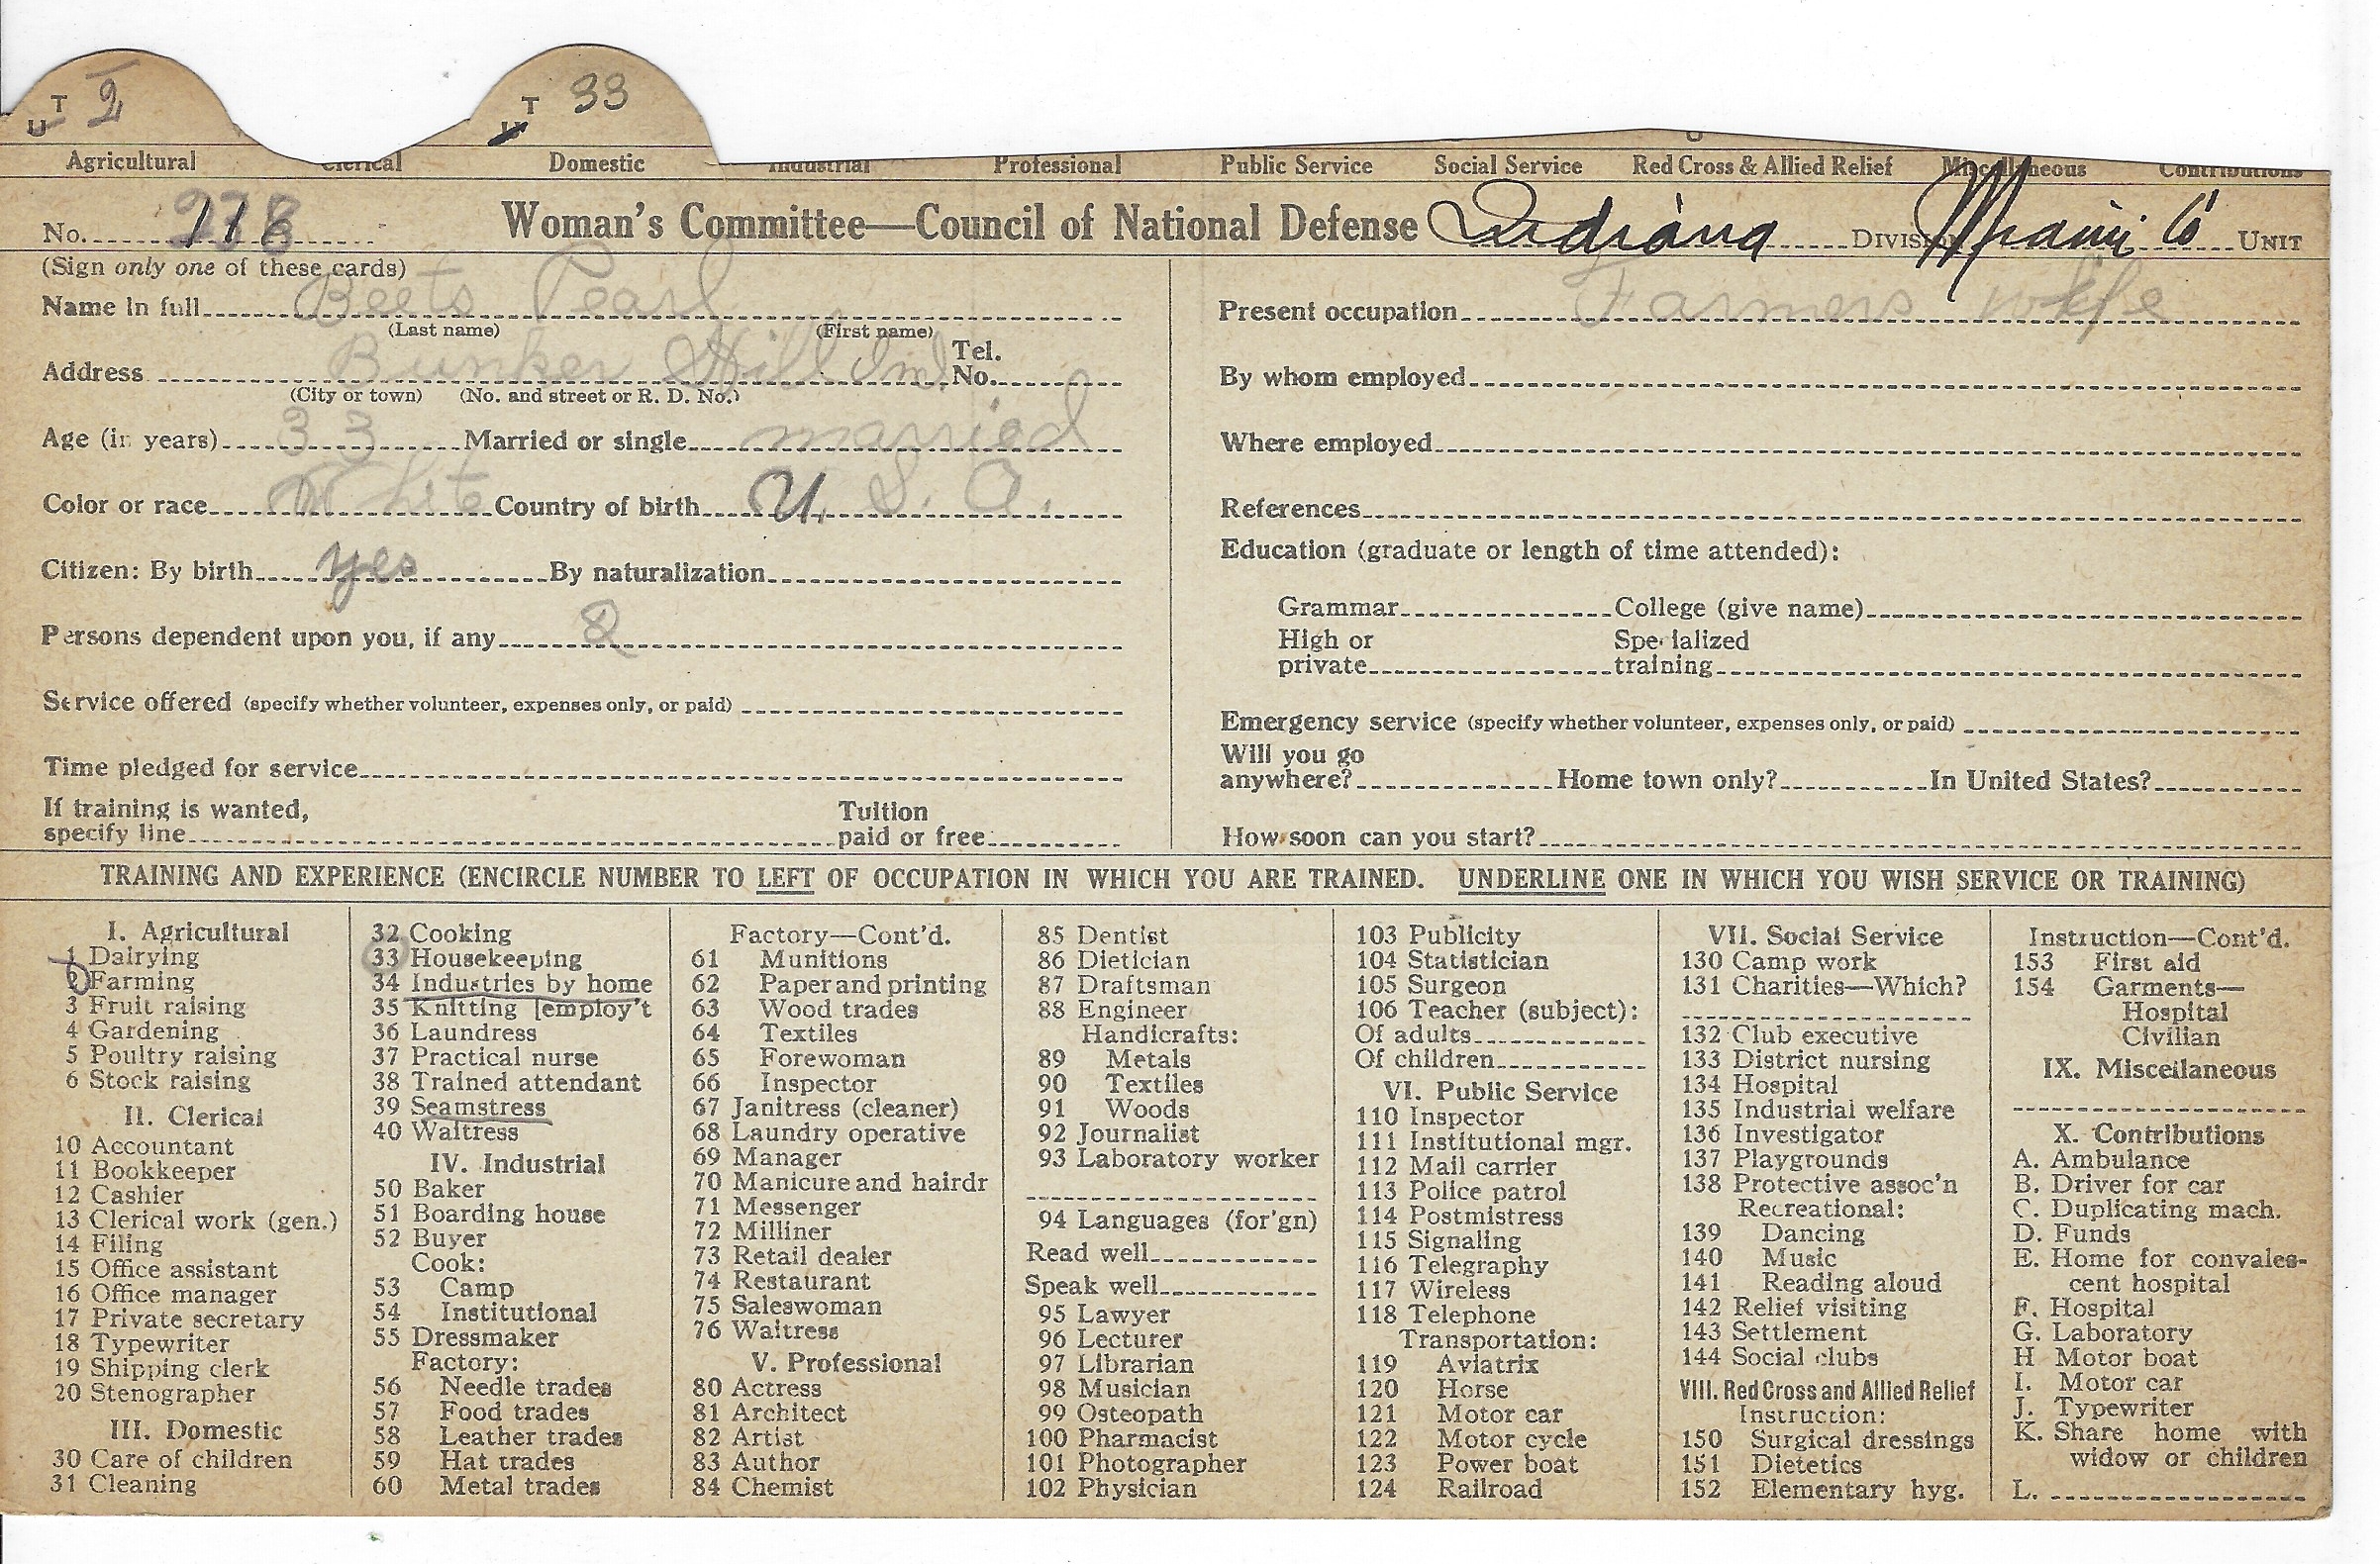 T 2
U
T 33
U
Agricultural Clerical Domestic Industrial Professional Public Service Social Service Red Cross & Allied Relief Miscellaneous Contributions
No. Woman's Committee—Council of National Defense Indiana Division Miami Co Unit
(Sign only one of these cards)
Name in full Beets Pearl
(Last name) (First name)
Address Bunker Hill Ind. Tel. No.
(City or town) (No. and street or R. D. No.)
Age (in years) 33 Married or single married
Color or race White Country of birth U. S. A.
Citizen: By birth yes By naturalization
Persons dependent upon you, if any 2
Service offered (specify whether volunteer, expenses only, or paid)
Time pledged for service
If training is wanted, specify line Tuition paid or free
Present occupation Farmers wife
By whom employed
Where employed
References
Education (graduate or length of time attended):
Grammar College (give name)
High or private Specialized training
Emergency service (specify whether volunteer, expenses only, or paid)
Will you go anywhere? Home town only? In United States?
How soon can you start?
TRAINING AND EXPERIENCE (ENCIRCLE NUMBER TO LEFT OF OCCUPATION IN WHICH YOU ARE TRAINED. UNDERLINE ONE IN WHICH YOU WISH SERVICE OR TRAINING)
I. Agricultural
1 Dairying
2 Farming
3 Fruit raising
4 Gardening
5 Poultry raising
6 Stock raising
II. Clerical
10 Accountant
11 Bookkeeper
12 Cashier
13 Clerical work (gen.)
14 Filing
15 Office assistant
16 Office manager
17 Private secretary
18 Typewriter
19 Shipping clerk
20 Stenographer
III. Domestic
30 Care of children
31 Cleaning
32 Cooking
33 Housekeeping
34 Industries by home
35 Knitting [employ't
36 Laundress
37 Practical nurse
38 Trained attendant
39 Seamstress
40 Waitress
IV. Industrial
50 Baker
51 Boarding house
52 Buyer
Cook:
53 Camp
54 Institutional
55 Dressmaker
Factory:
56 Needle trades
57 Food trades
58 Leather trades
59 Hat trades
60 Metal trades
Factory—Cont'd.
61 Munitions
62 Paper and printing
63 Wood trades
64 Textiles
65 Forewoman
66 Inspector
67 Janitress (cleaner)
68 Laundry operative
69 Manager
70 Manicure and hairdr
71 Messenger
72 Milliner
73 Retail dealer
74 Restaurant
75 Saleswoman
76 Waitress
V. Professional
80 Actress
81 Architect
82 Artist
83 Author
84 Chemist
85 Dentist
86 Dietician
87 Draftsman
88 Engineer
Handicrafts:
89 Metals
90 Textiles
91 Woods
92 Journalist
93 Laboratory worker
94 Languages (for'gn)
Read well
Speak well
95 Lawyer
96 Lecturer
97 Librarian
98 Musician
99 Osteopath
100 Pharmacist
101 Photographer
102 Physician
103 Publicity
104 Statistician
105 Surgeon
106 Teacher (subject):
Of adults
Of children
VI. Public Service
110 Inspector
111 Institutional mgr.
112 Mail carrier
113 Police patrol
114 Postmistress
115 Signaling
116 Telegraphy
117 Wireless
118 Telephone
Transportation:
119 Aviatrix
120 Horse
121 Motor car
122 Motor cycle
123 Power boat
124 Railroad
VII. Social Service
130 Camp work
131 Charities—Which?
132 Club executive
133 District nursing
134 Hospital
135 Industrial welfare
136 Investigator
137 Playgrounds
138 Protective assoc'n
Recreational:
139 Dancing
140 Music
141 Reading aloud
142 Relief visiting
143 Settlement
144 Social clubs
VIII. Red Cross and Allied Relief
Instruction:
150 Surgical dressings
151 Dietetics
152 Elementary hyg.
Instruction—Cont'd.
153 First aid
154 Garments—
Hospital
Civilian
IX. Miscellaneous
X. Contributions
A. Ambulance
B. Driver for car
C. Duplicating mach.
D. Funds
E. Home for convales-
cent hospital
F. Hospital
G. Laboratory
H Motor boat
I. Motor car
J. Typewriter
K. Share home with
widow or children
L.